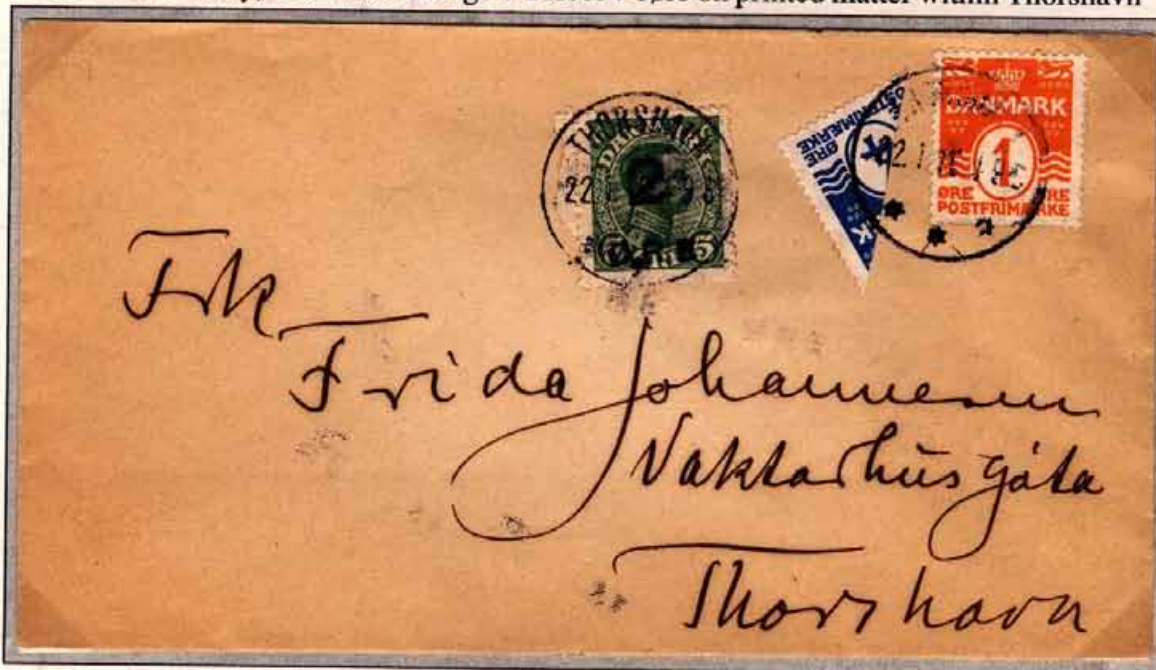 on printed matter within Thorshavn
THORSHAVN
22
2
5 5
ØRE
POSTFRIMÆRKE
ØRE
DANMARK
22.1
1
ØRE
POSTFRIMÆRKE
Frk
Frida Johannesen
Vaktarhúsgöta
Thorshavn